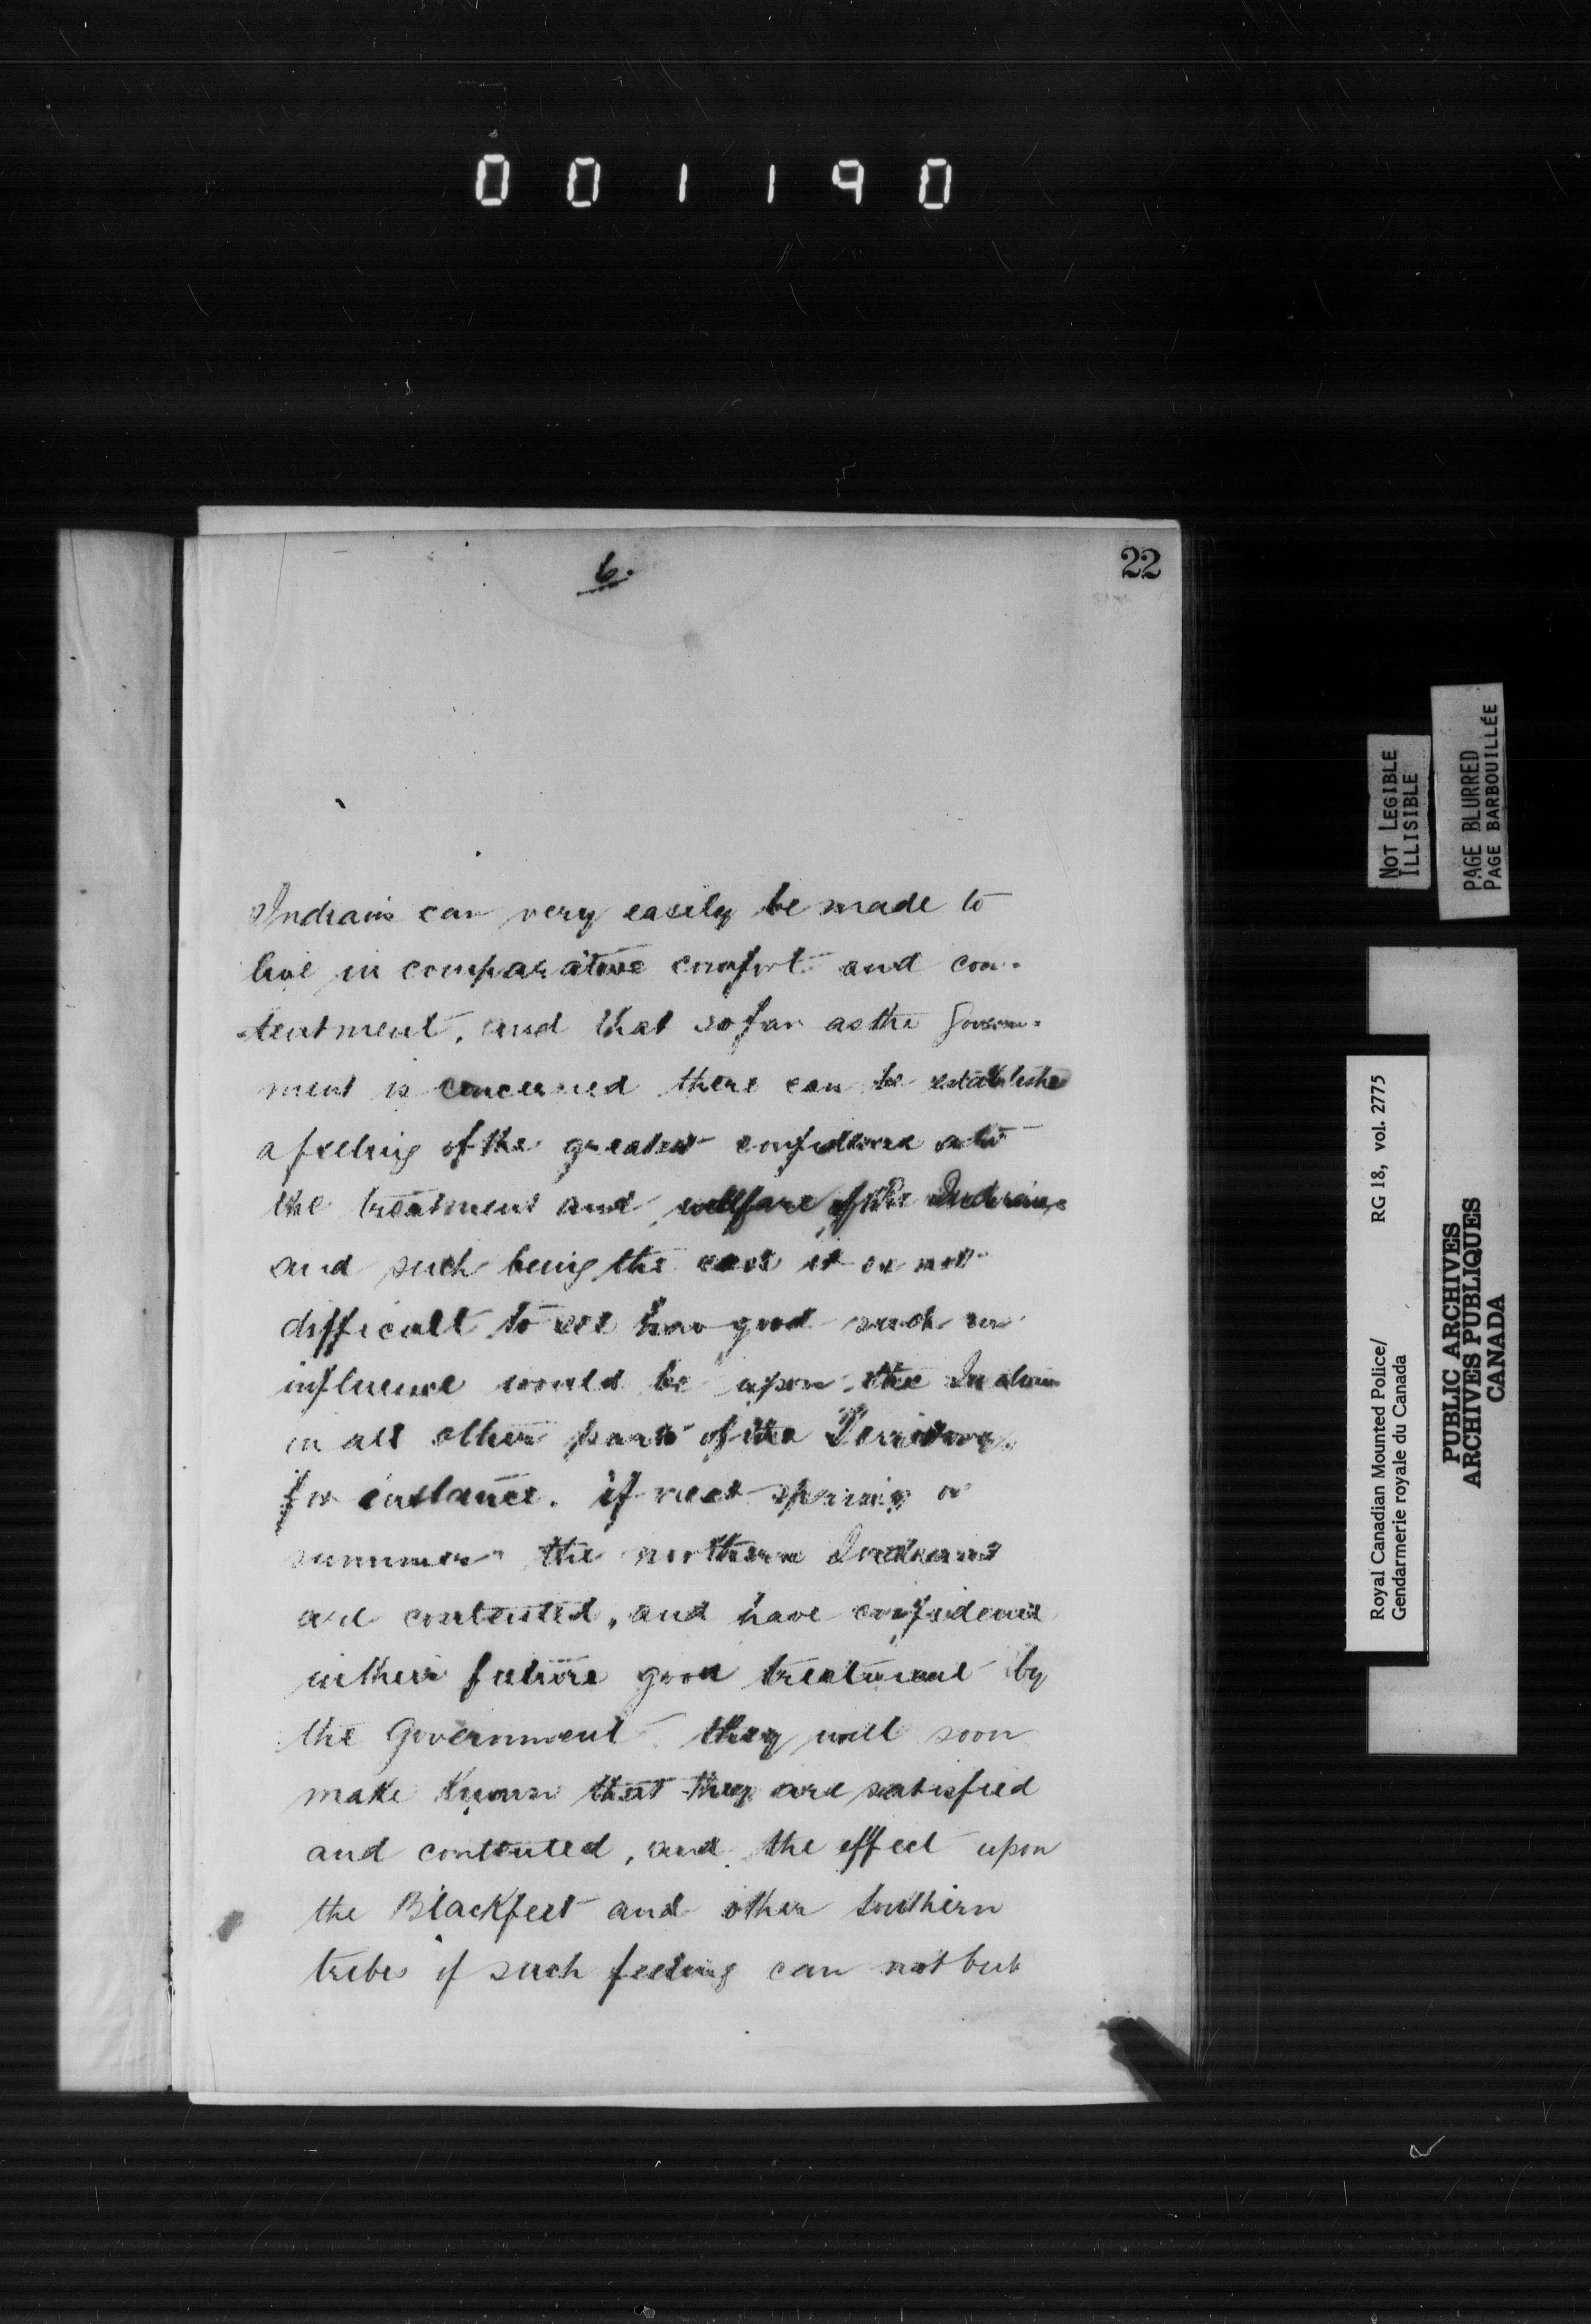 001190
6.
22
Indians can very easily be made to
live in comparative comfort and con-
tentment, and that so far as the Govern-
ment is concerned there can be established
a feeling of the greatest confidence as to
the treatment and wellfare of the Indians
and such being the case it is not
difficult to see how good such an
influence would be upon the Indians
in all other parts of the Territory.
for instance. if next spring or
summer the northern Indians
are contented, and have confidence
in their future good treatment by
the Government they will soon
make known that they are satisfied
and contented, and the effect upon
the Blackfeet and other Southern
tribes of such feeling can not but
NOT LEGIBLE
ILLISIBLE
PAGE BLURRED
PAGE BARBOUILLÉE
Royal Canadian Mounted Police/ RG 18, vol. 2775
Gendarmerie royale du Canada
PUBLIC ARCHIVES
ARCHIVES PUBLIQUES
CANADA